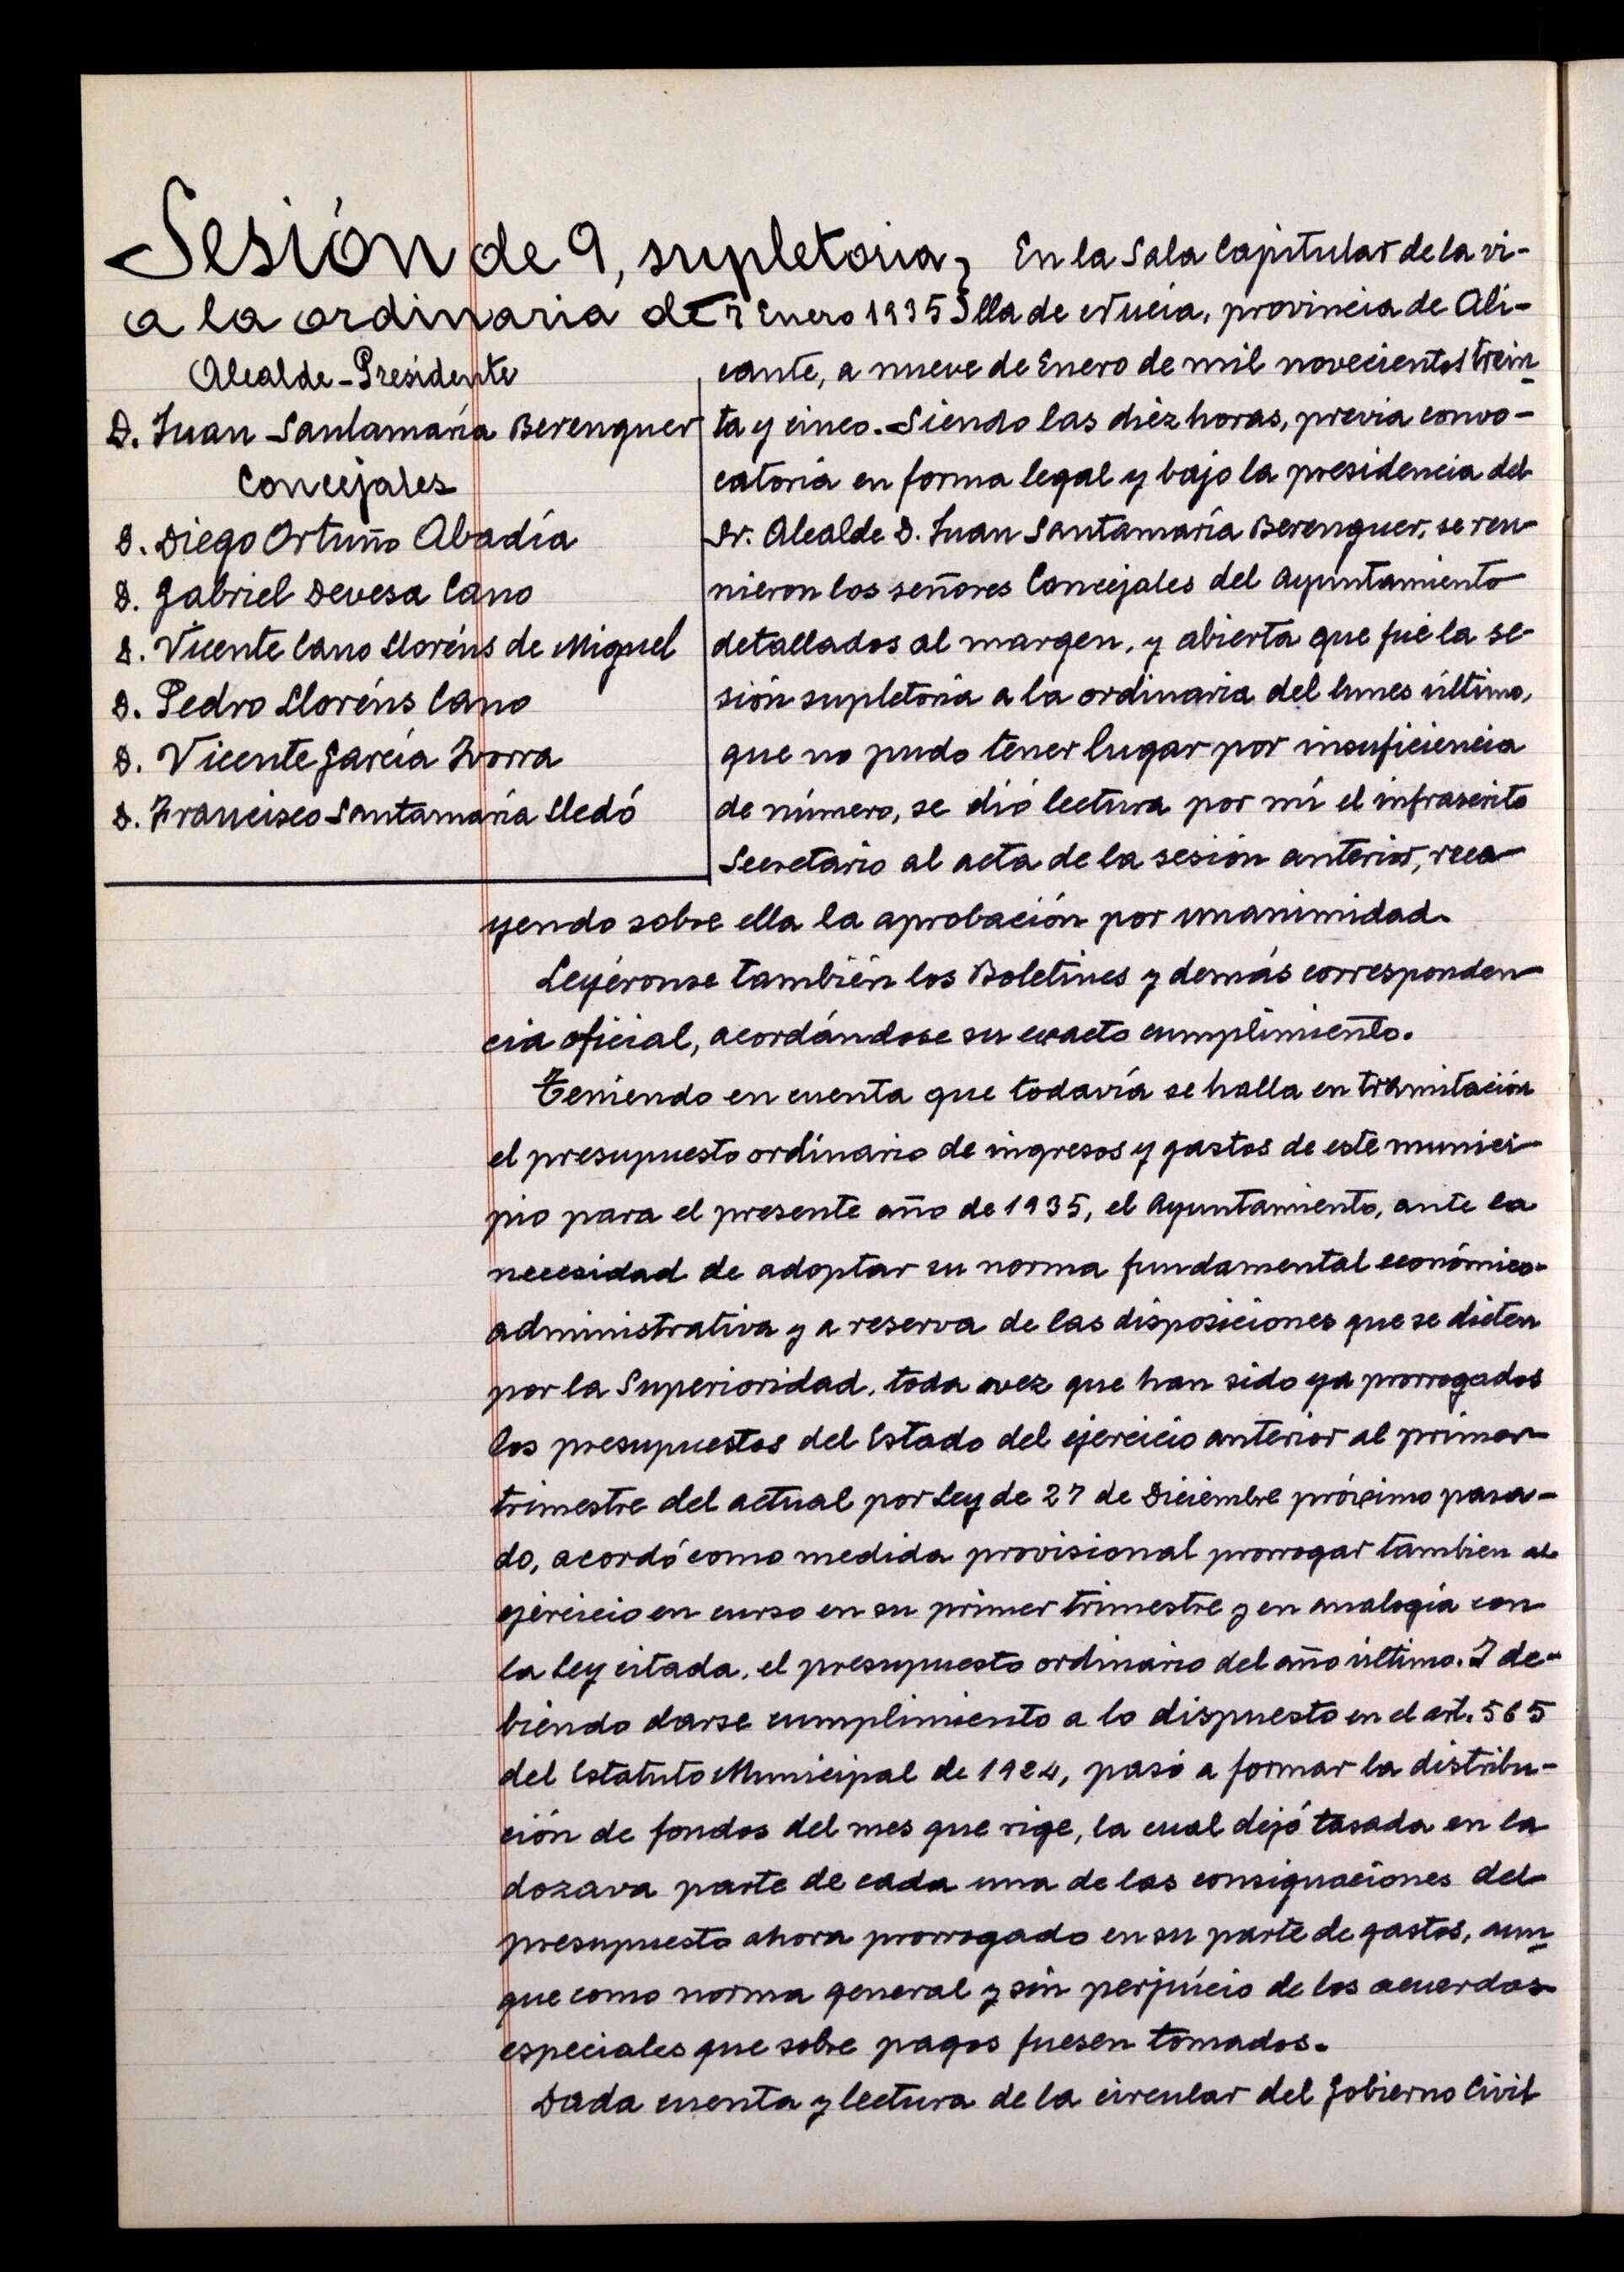 Sesión de 9, supletoria,
a la ordinaria de 7 Enero 1935
Alcalde-Presidente
D. Juan Santamaría Berenguer
Concejales
D. Diego Ortuño Abadía
D. Gabriel Devesa Cano
D. Vicente Cano Lloréns de Miguel
D. Pedro Lloréns Cano
D. Vicente García Ivorra
D. Francisco Santamaría Lledó
En la Sala Capitular de la vi-
lla de Nucia, provincia de Ali-
cante, a nueve de Enero de mil novecientos trein-
ta y cinco. Siendo las diéz horas, previa convo-
catoria en forma legal y bajo la presidencia del
Sr. Alcalde D. Juan Santamaría Berenguer, se reu-
nieron los señores Concejales del Ayuntamiento
detallados al margen, y abierta que fué la se-
sión supletoria a la ordinaria del lunes último,
que no pudo tener lugar por insuficiencia
de número, se dió lectura por mí el infrascrito
Secretario al acta de la sesión anterior, reca-
yendo sobre ella la aprobación por unanimidad.
Leyéronse también los Boletines y demás corresponden-
cia oficial, acordándose su exacto cumplimiento.
Teniendo en cuenta que todavía se halla en tramitación
el presupuesto ordinario de ingresos y gastos de este munici-
pio para el presente año de 1935, el Ayuntamiento, ante la
necesidad de adoptar su norma fundamental económico-
administrativa y a reserva de las disposiciones que se dicten
por la Superioridad, toda vez que han sido ya prorrogados
los presupuestos del Estado del ejercicio anterior al primer
trimestre del actual por Ley de 27 de Diciembre próximo pasa-
do, acordó como medida provisional prorrogar tambien al
ejercicio en curso en su primer trimestre y en analogía con
la Ley citada, el presupuesto ordinario del año último. Y de-
biendo darse cumplimiento a lo dispuesto en el art. 565
del Estatuto Municipal de 1924, pasó a formar la distribu-
ción de fondos del mes que rige, la cual dejó tasada en la
dozava parte de cada una de las consignaciones del
presupuesto ahora prorrogado en su parte de gastos, aun-
que como norma general y sin perjuicio de los acuerdos
especiales que sobre pagos fuesen tomados.
Dada cuenta y lectura de la circular del Gobierno Civil